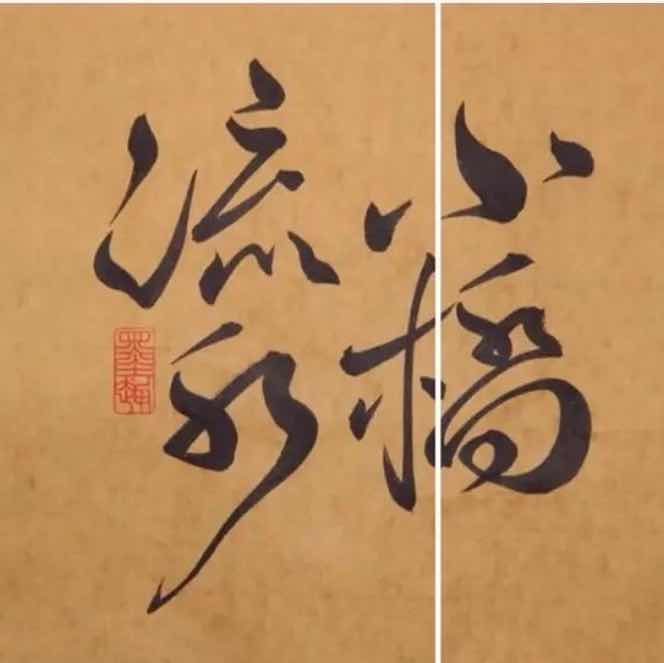 小橋
流水